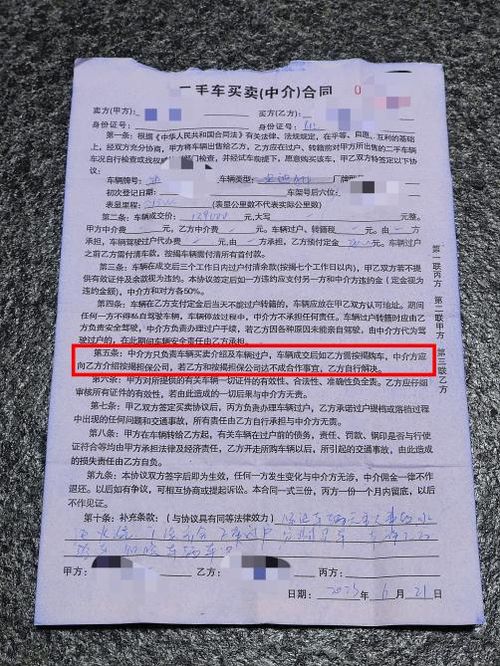 二手车买卖(中介)合同
卖方(甲方): 买方(乙方):
身份证号: 身份证号:
第一条:根据《中华人民共和国合同法》有关法律、法规规定,在平等、自愿、互利的基础
上,经双方充分协商,甲方将车辆出售给乙方,乙方应在过户、转籍前对甲方所出售的二手车辆
车况自行检查或找权威部门检查,并经试车愿意,愿意购买该车,甲乙双方特签定以下协
议:
车辆牌号: 车辆类型: 厂牌
初次登记日期: 车架号后六位:
表显里程: (表显公里数不代表实际公里数)
第二条:车辆成交价: 129000 元,大写 元整。
甲方中介费 元,乙方中介费 元,车辆过户、转籍税 元,由 方
承担,车辆驾驶过户代办费 元,由 方承担,乙方预付定金 元,乙方于
之前一次性付清车款,按揭车辆付清所有首付款。
第三条:车辆在成交后三个工作日内过户付清余款(按揭七个工作日以内),甲乙双方若不提
供有效证件及余款视为违约。本协议签定后如一方违约应支付另一方和中介方违约金(定金视为
违约金额),中介方和对方各50%。
第四条:车辆在乙方支付定金后当天不能过户转籍的,车辆应放在甲乙双方认可地址。期间
任何一方不得私自驾驶车辆,车辆停放过程中,中介方不承担任何责任。车辆办理过户时应由
方负责安全驾驶。中介方负责办理过户手续,若乙方因各种原因未能亲自驾驶,由中介方代为驾
驶过户的,在此期间车辆安全责任由乙方承担。
第五条:中介方只负责车辆买卖介绍及车辆过户,车辆成交后如乙方需按揭购车,中介方应
向乙方介绍按揭担保公司,若乙方和按揭担保公司达不成合作事宜,乙方自行解决。
第六条:甲方对所提供的有关车辆一切证件的有效性、合法性、准确性负全责。乙方应仔细
审核所有证件的有效性,若由此造成的一切后果与中介方无责。
第七条:甲乙双方签定买卖协议后,丙方负责办理车辆过户,乙方承诺过户提档或落档过程
中出现的任何问题和交通事故,所有责任自行承担与中介方无责。
第八条:甲方在车辆转给乙方起,有关车辆在过户前的债务,责任、罚款、钢印是否与行使
证符合等均由甲方承担法律及经济责任,乙方开走所购车辆以后,所引起的交通事故,由此造成
的损失责任由乙方自负。
第九条:本协议双方签字后即为生效,任何一方发生变化与中介方无涉,中介佣金一律不作
退还。以后如有争议,可相互协商或提起诉讼。本合同一式三份,丙方一份一个月内留底,以后
不作见证。
第十条:补充条款:(与协议具有同等法律效力)保证车辆无重大事故水
甲方: 乙方: 丙方:
日期: 2023年6月21日
第一联丙方
第二联甲方
第三联乙方